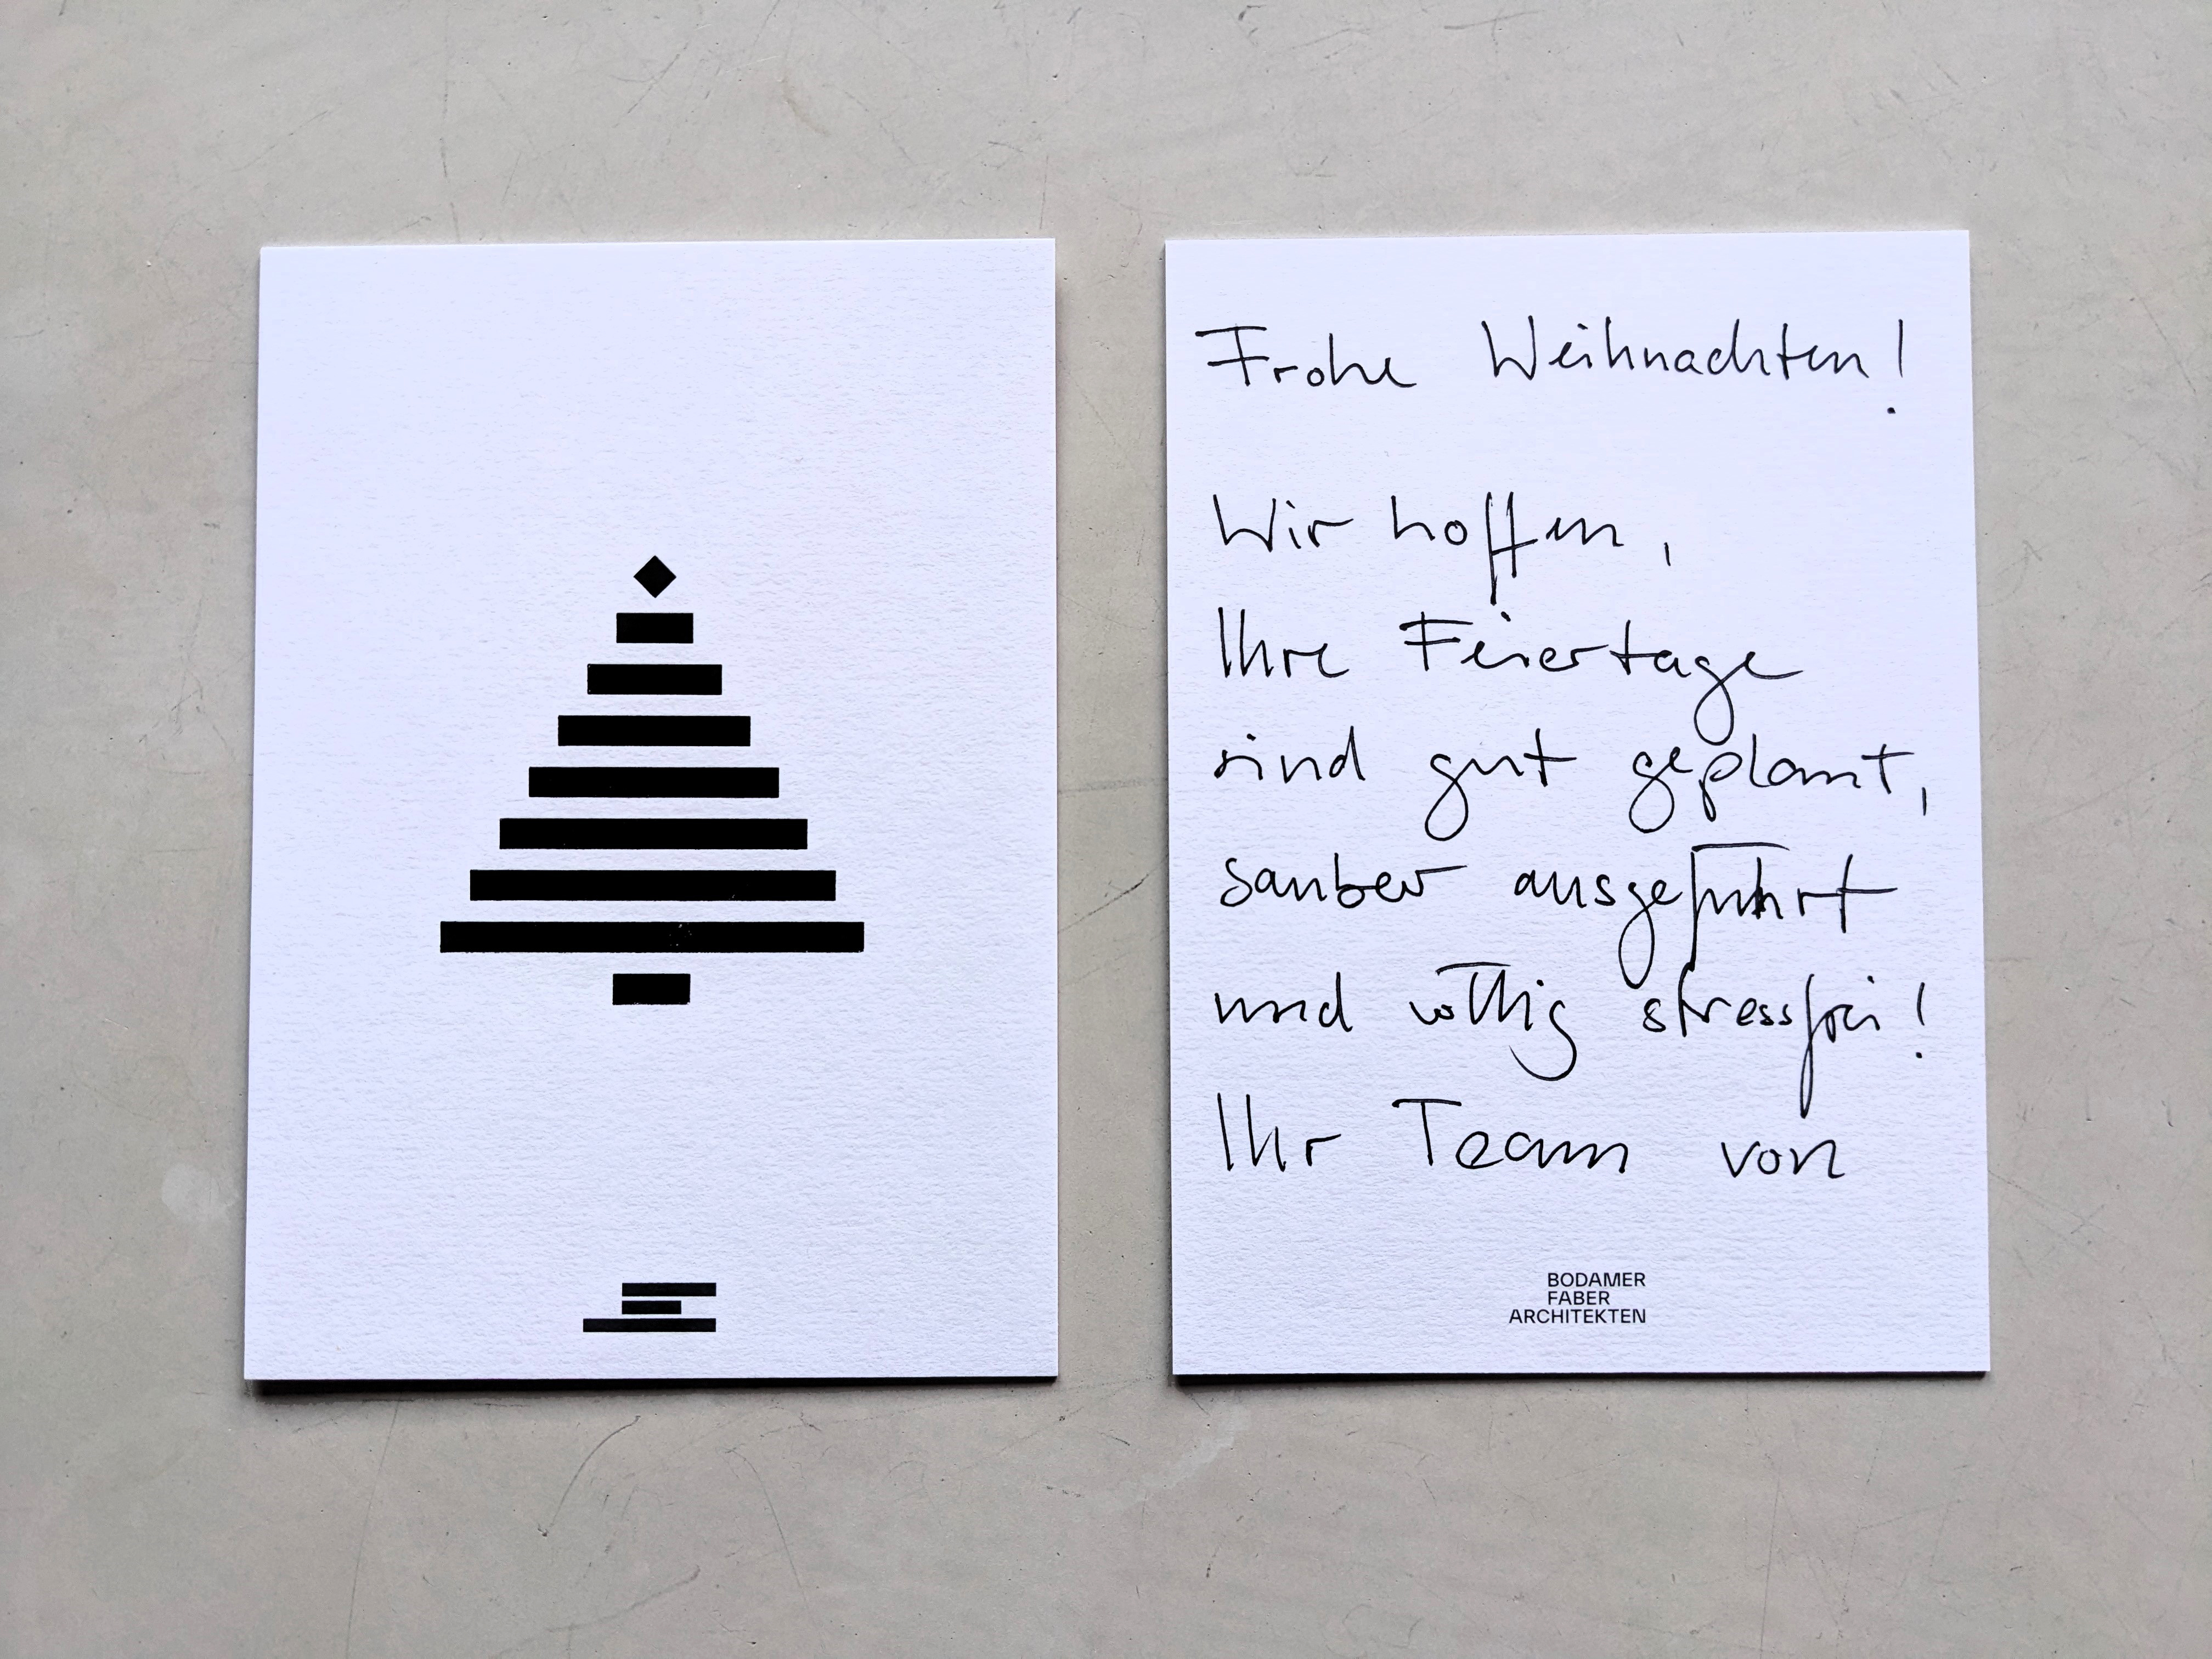 Frohe Weihnachten!
Wir hoffen,
Ihre Feiertage
sind gut geplant,
sauber ausgeführt
und völlig stressfrei!
Ihr Team von
BODAMER
FABER
ARCHITEKTEN